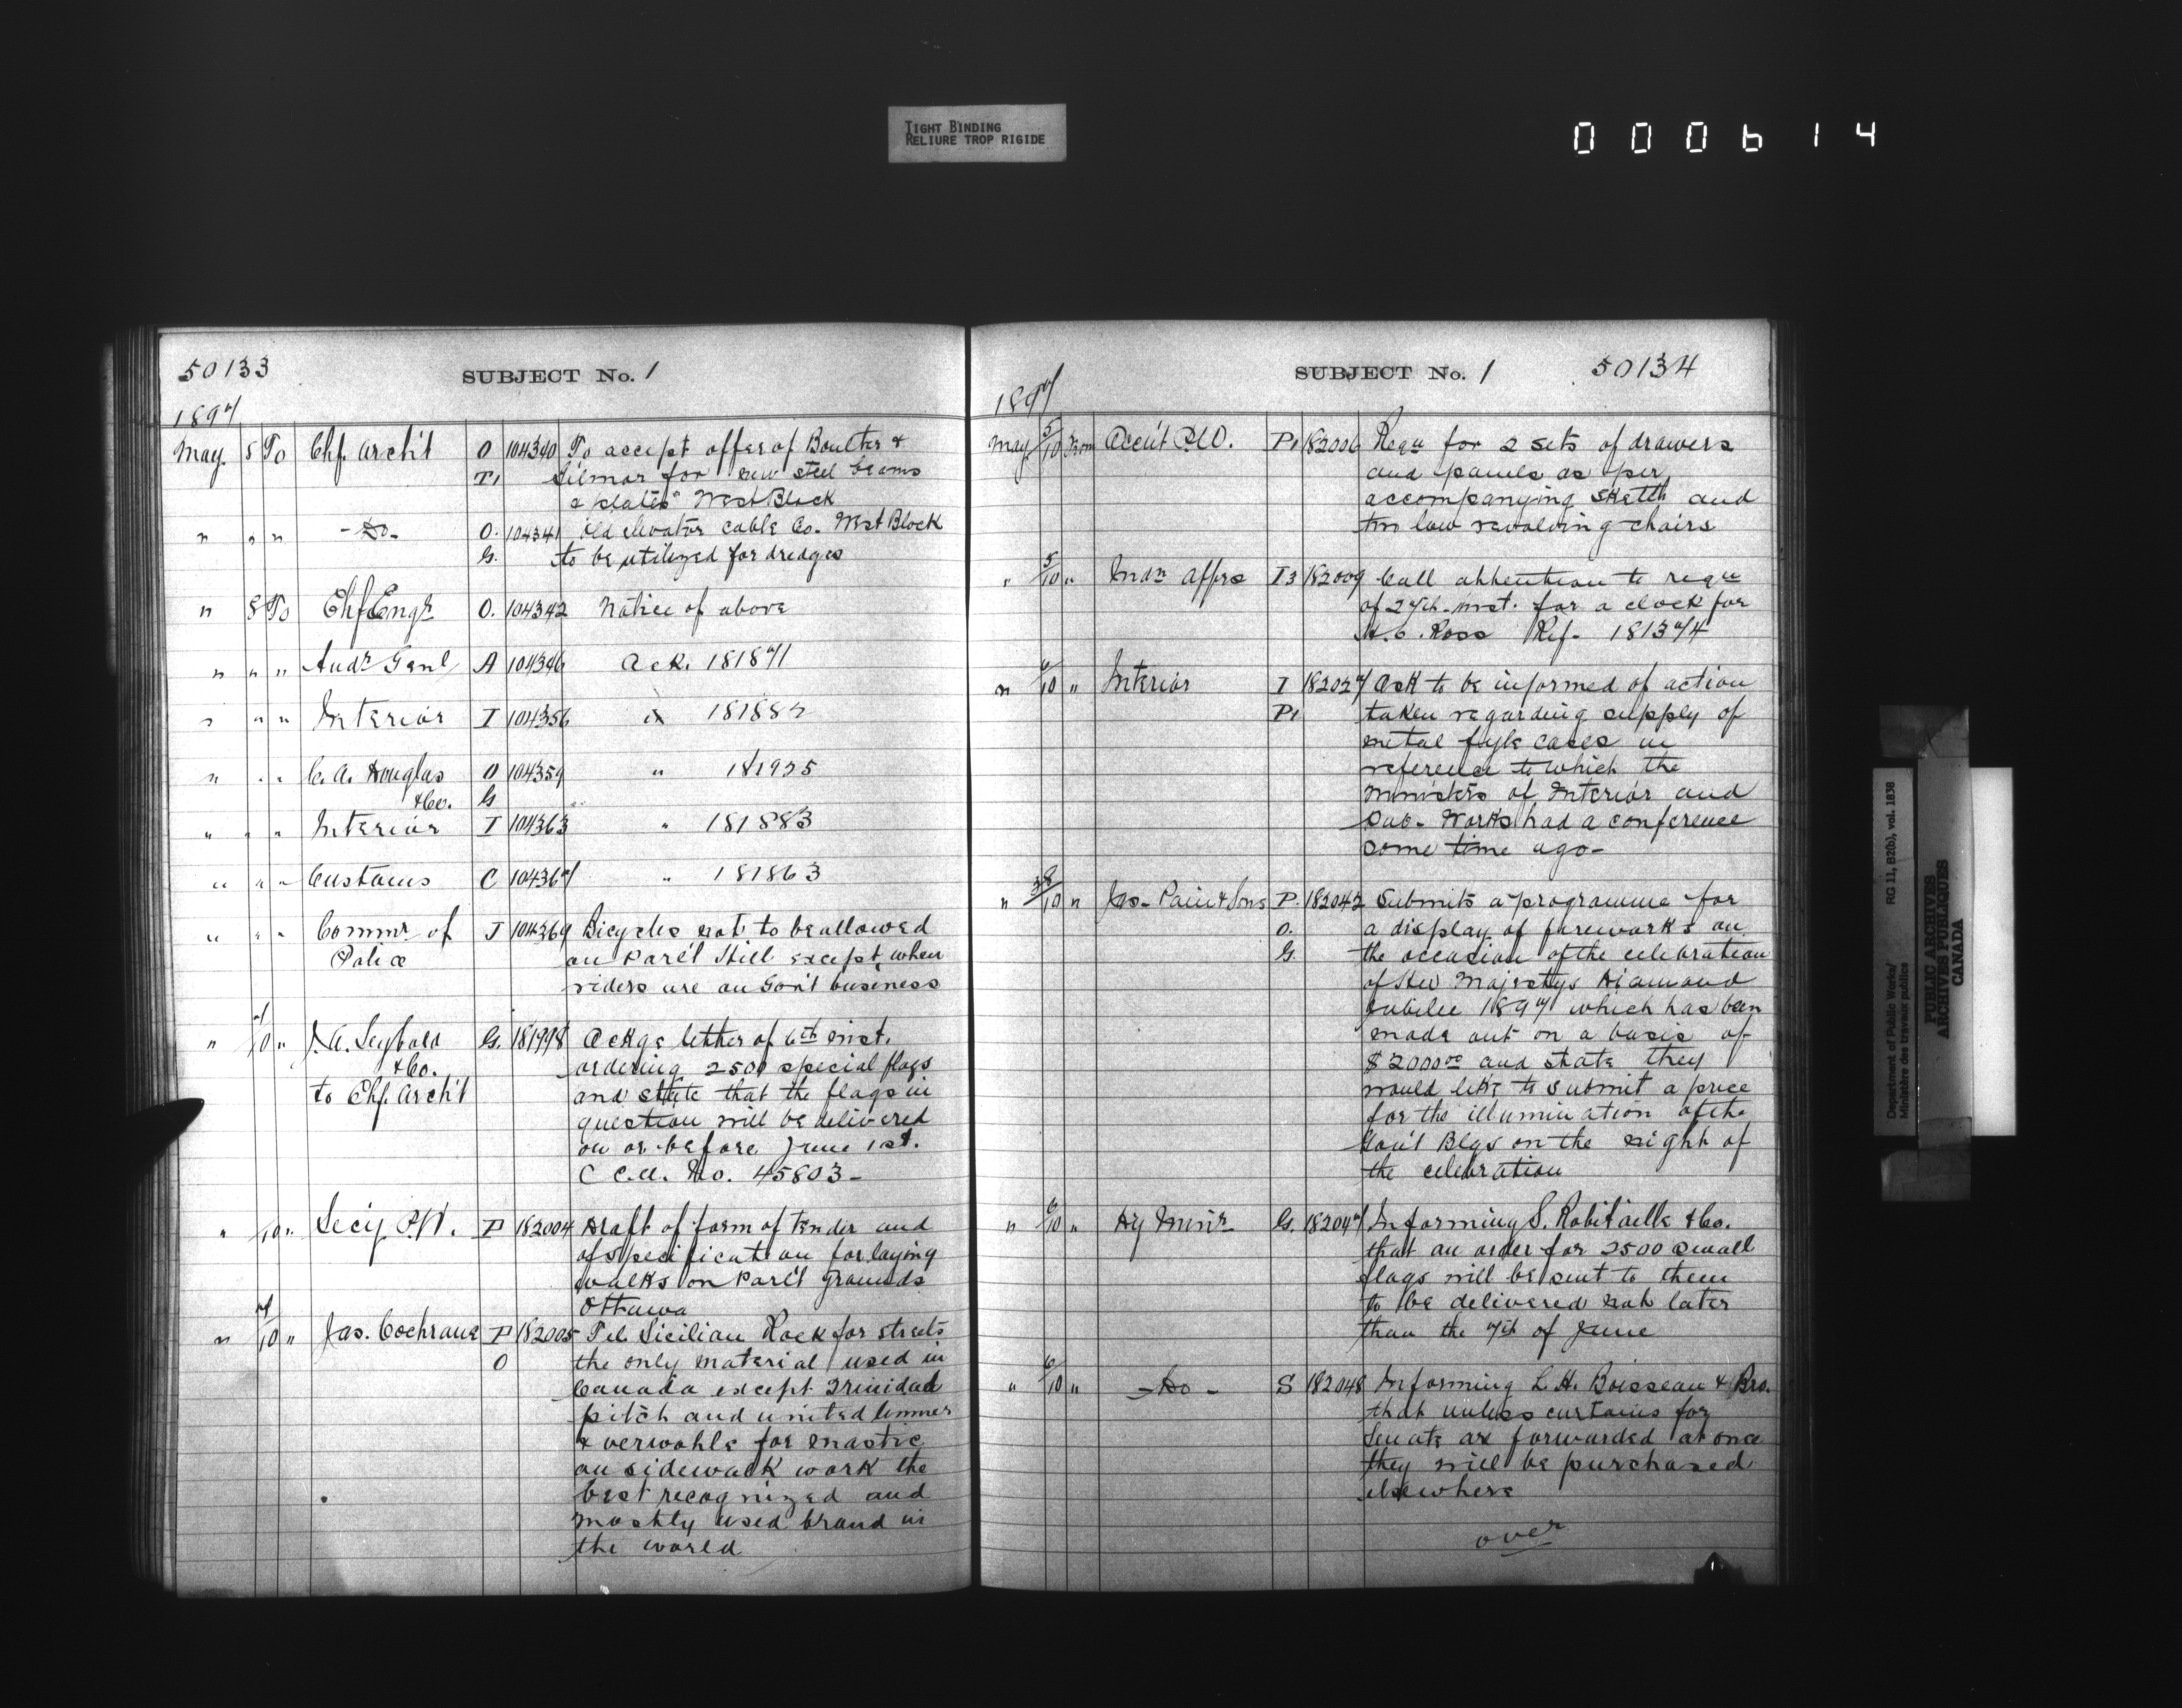 TIGHT BINDING
RELIURE TROP RIGIDE
000614
50133
SUBJECT No. 1
1897
May. 8 To Chf. Archt O 104340 To accept offer of Boulter &
T1 Gilmor for new steel beams
& plates" West Block
" " " -Do- O. 104341 Old elevator cable Co. West Block
G. to be utilized for dredges
" 8 To Chf Engr O. 104342 Notice of above
" " " Audr Genl A 104346 Ack. 181871
" " " Interior I 104356 " 181882
" " " C. A. Douglas O 104359 " 181925
&Co. G
" " " Interior I 104363 " 181883
" " " Customs C 104367 " 181863
" " " Commr of J 104369 Bicycles not to be allowed
Police on Parl't Hill except when
riders are on Gov't business
" 7/10 " J. A. Seybold G. 181998 Ackge letter of 6th inst.
&Co. ordering 2500 special flags
to Chf. Archt and state that the flags in
question will be delivered
on or before June 1st.
C C.A. No. 45803-
" /10 " Secy. P.W. P 182004 Draft of form of tender and
of specification for laying
walks on Parl't Grounds
Ottawa
" 7/10 " Jas. Cochrane P 182005 Tel. Sicilian Rock for streets
O the only material used in
Canada except Trinidad
pitch and united limmer
& verwohle for mastic
on sidewalk work the
best recognized and
mostly used brand in
the world
SUBJECT No. 1 50134
1897
May 5/10 From Acc'nt P.W. P1 182006 Requ for 2 sets of drawers
and panels as per
accompanying sketch and
two low revolving chairs
" 5/10 " Indn Affrs I3 182009 Call attention to requ
of 27th inst. for a clock for
A. C. Ross Ref- 181374
" 6/10 " Interior I 182027 Ask to be informed of action
P1 taken regarding supply of
metal fyle cases in
reference to which the
Ministers of Interior and
Pub- Works had a conference
some time ago-
" 28/10 " Jas- Pain & Sons P. 182042 Submits a programme for
O. a display of fireworks on
G. the occasion of the celebration
of Her Majestys Diamond
Jubilee 1897 which has been
made out on a basis of
$2000.00 and state they
would like to submit a price
for the illumination of the
Gov't Blgs on the night of
the celebration
" 6/10 " Dy Minr G. 182047 Informing S. Robitaille &Co.
that an order for 2500 small
flags will be sent to them
to be delivered not later
than the 7th of June
" 6/10 " -Do- S 182048 Informing L. H. Boisseau & Bro.
that unless curtains for
Senate are forwarded at once
they will be purchased
elsewhere
over
Department of Public Works/ RG 11, B2(b), vol. 1838
Ministère des travaux publics
PUBLIC ARCHIVES
ARCHIVES PUBLIQUES
CANADA